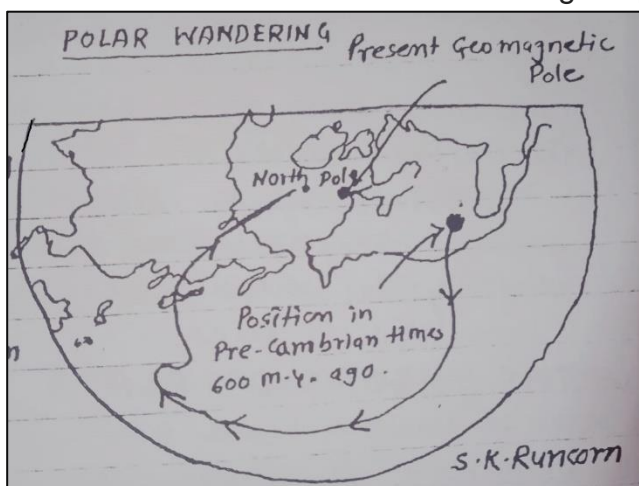 POLAR WANDERING
Present Geomagnetic
Pole
North Pole
Position in
Pre-Cambrian times
600 m.y. ago.
S.K.Runcorn